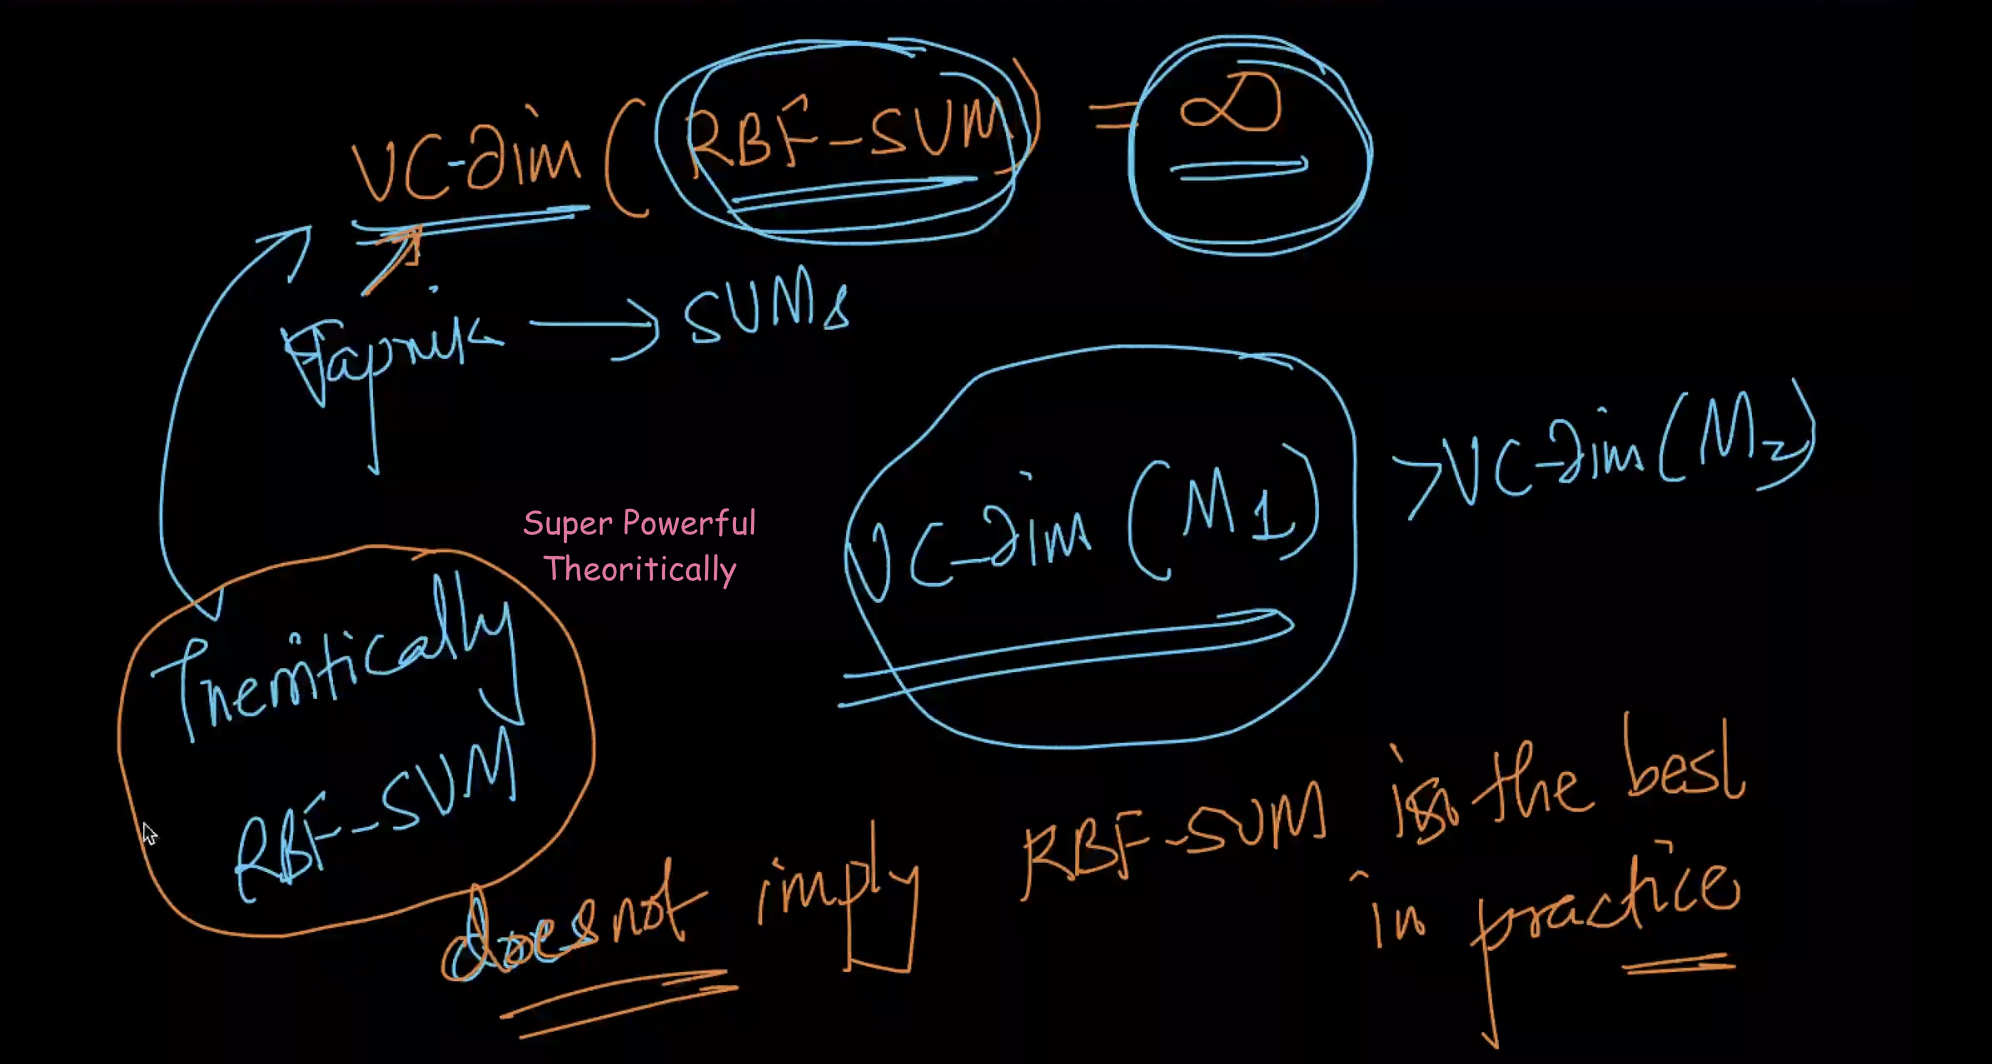 VC-dim (RBF-SVM) = ∞
Vapnik → SVMs
VC-dim (M1) > VC-dim (M2)
Super Powerful
Theoritically
Theoritically
RBF-SVM
does not imply RBF-SVM is the best
in practice